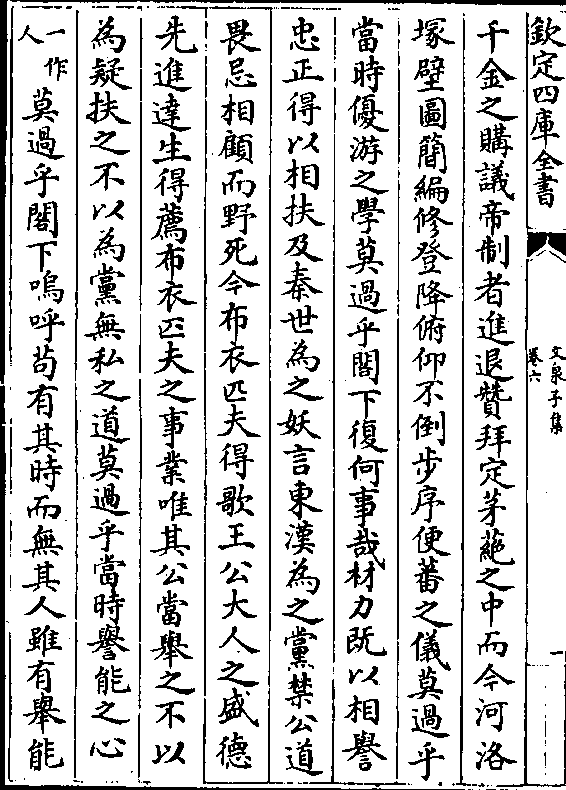 欽定四庫全書
文泉子集
卷六
一
千金之購議帝制者進退贊拜定茅蕝之中而今河洛
塚壁圖簡編修登降俯仰不倒步序便蕃之儀莫過乎
當時優游之學莫過乎閣下復何事哉材力既以相譽
忠正得以相扶及秦世為之妖言東漢為之黨禁公道
畏忌相顧而野死今布衣匹夫得歌王公大人之盛德
先進達生得薦布衣匹夫之事業唯其公當舉之不以
為疑扶之不以為黨無私之道莫過乎當時譽能之心
一作
人
莫過乎閣下嗚呼苟有其時而無其人雖有舉能